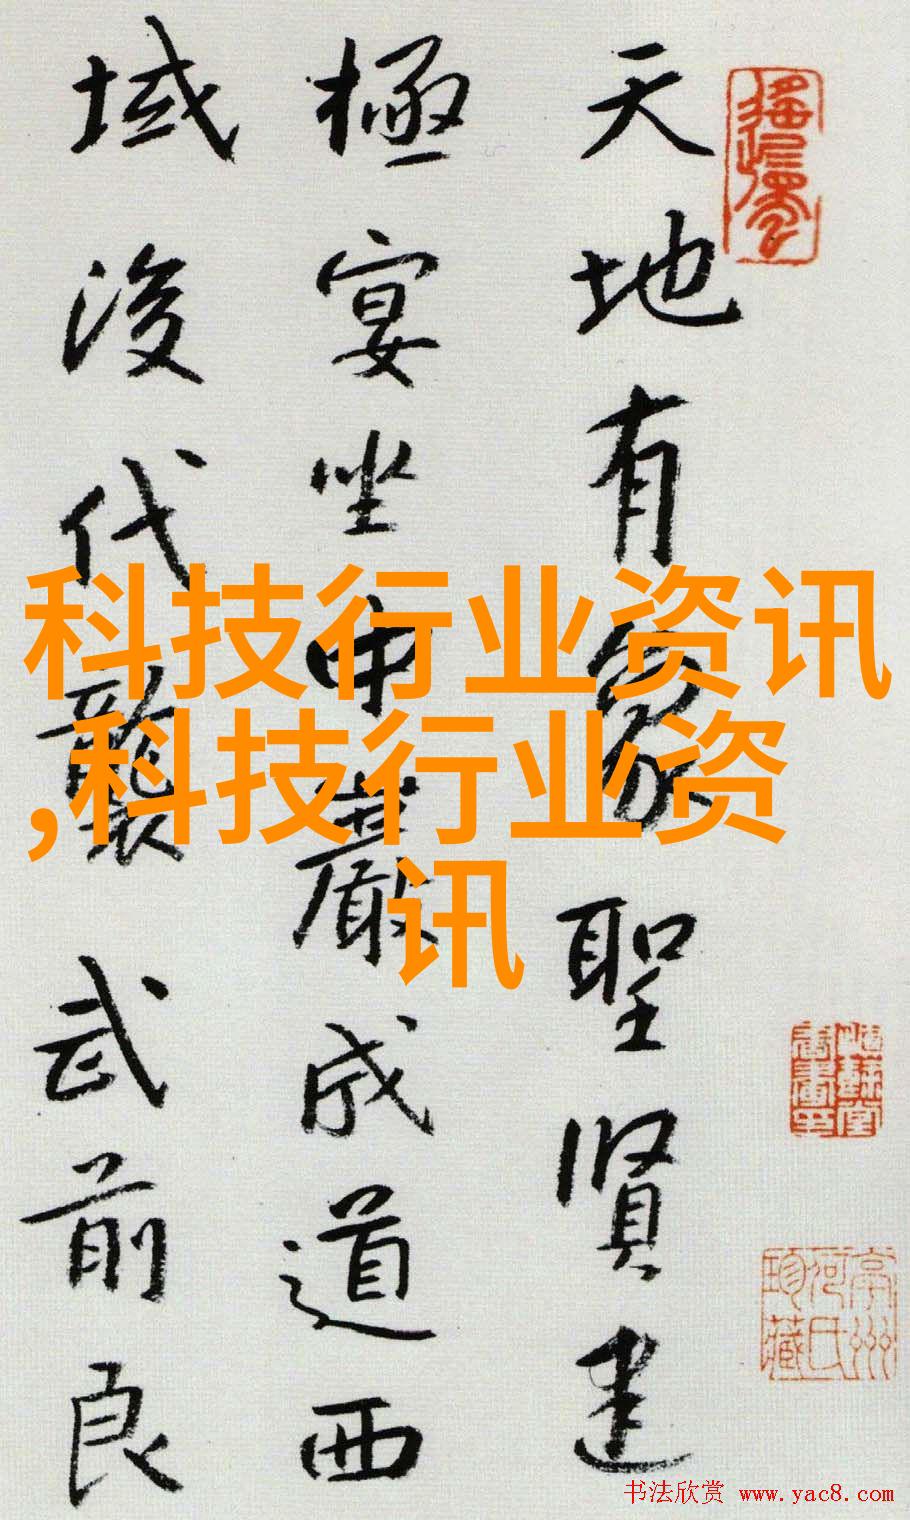 天地有象聖賢建
極宴坐中嚴成道西
域後代襲武前良
科技行业资讯
,科技行业资
讯
书法欣赏 www.yac8.com